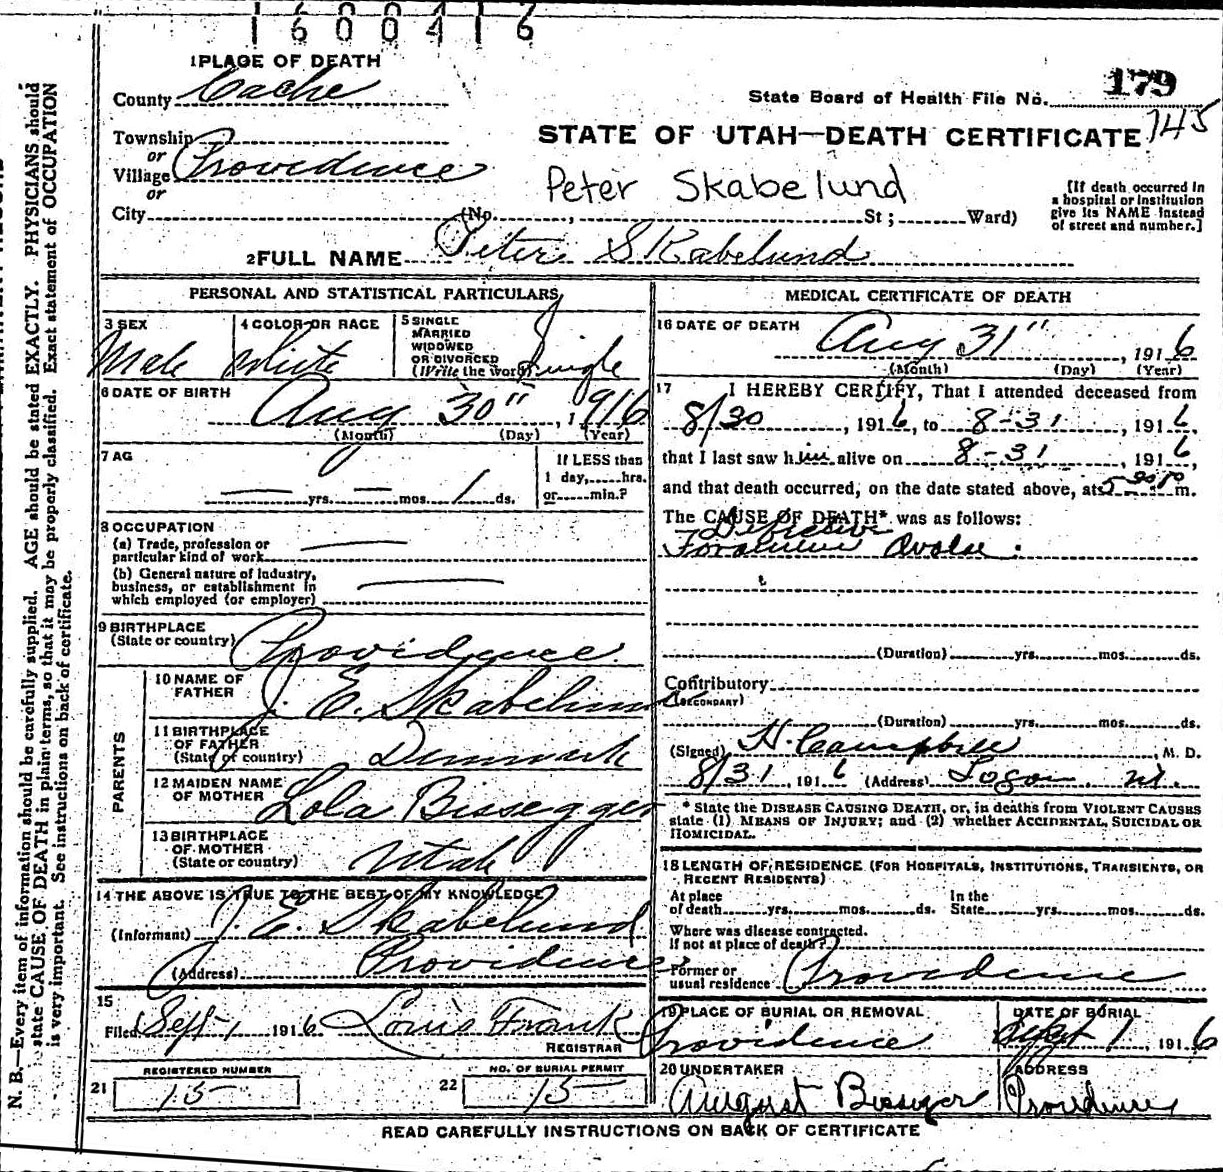 1600416
1 PLACE OF DEATH
County Cache
State Board of Health File No. 179
Township
or
Village Providence
or
STATE OF UTAH—DEATH CERTIFICATE 745
Peter Skabelund
City (No. , St ; Ward)
[If death occurred in
a hospital or institution
give its NAME instead
of street and number.]
2 FULL NAME Peter Skabelund
PERSONAL AND STATISTICAL PARTICULARS
3 SEX
Male
4 COLOR OR RACE
White
5 SINGLE
MARRIED
WIDOWED
OR DIVORCED
(Write the word) Single
6 DATE OF BIRTH
Aug 30" , 1916
(Month) (Day) (Year)
7 AG
— yrs. — mos. 1 ds.
If LESS than
1 day, hrs.
or min.?
8 OCCUPATION
(a) Trade, profession or
particular kind of work —
(b) General nature of industry,
business, or establishment in
which employed (or employer) —
9 BIRTHPLACE
(State or country) Providence
PARENTS
10 NAME OF
FATHER
J. E. Skabelund
11 BIRTHPLACE
OF FATHER
(State or country) Denmark
12 MAIDEN NAME
OF MOTHER
Lola Bissegger
13 BIRTHPLACE
OF MOTHER
(State or country) Utah
14 THE ABOVE IS TRUE TO THE BEST OF MY KNOWLEDGE
(Informant) J. E. Skabelund
(Address) Providence
15
Filed Sept 1 1916 Louis Frank
REGISTRAR
REGISTERED NUMBER
21 15
NO. OF BURIAL PERMIT
22 15
MEDICAL CERTIFICATE OF DEATH
16 DATE OF DEATH
Aug 31" , 1916
(Month) (Day) (Year)
17 I HEREBY CERTIFY, That I attended deceased from
8/30 , 1916, to 8-31 , 1916,
that I last saw him alive on 8-31 , 1916,
and that death occurred, on the date stated above, at 5 30 P m.
The CAUSE OF DEATH* was as follows:
Defective
Foramen Ovale.
(Duration) yrs. mos. ds.
Contributory
(SECONDARY)
(Duration) yrs. mos. ds.
(Signed) H. Campbell M. D.
8/31 , 1916 (Address) Logan Ut.
* State the DISEASE CAUSING DEATH, or, in deaths from VIOLENT CAUSES
state (1) MEANS OF INJURY; and (2) whether ACCIDENTAL, SUICIDAL OR
HOMICIDAL.
18 LENGTH OF RESIDENCE (FOR HOSPITALS, INSTITUTIONS, TRANSIENTS, OR
RECENT RESIDENTS)
At place
of death yrs. mos. ds.
In the
State yrs. mos. ds.
Where was disease contracted.
If not at place of death?
Former or
usual residence Providence
19 PLACE OF BURIAL OR REMOVAL
Providence
DATE OF BURIAL
Sept 1 , 1916
20 UNDERTAKER
August Bisseger
ADDRESS
Providence
READ CAREFULLY INSTRUCTIONS ON BACK OF CERTIFICATE
N. B.—Every item of information should be carefully supplied. AGE should be stated EXACTLY. PHYSICIANS should
state CAUSE OF DEATH in plain terms, so that it may be properly classified. Exact statement of OCCUPATION
is very important. See instructions on back of certificate.